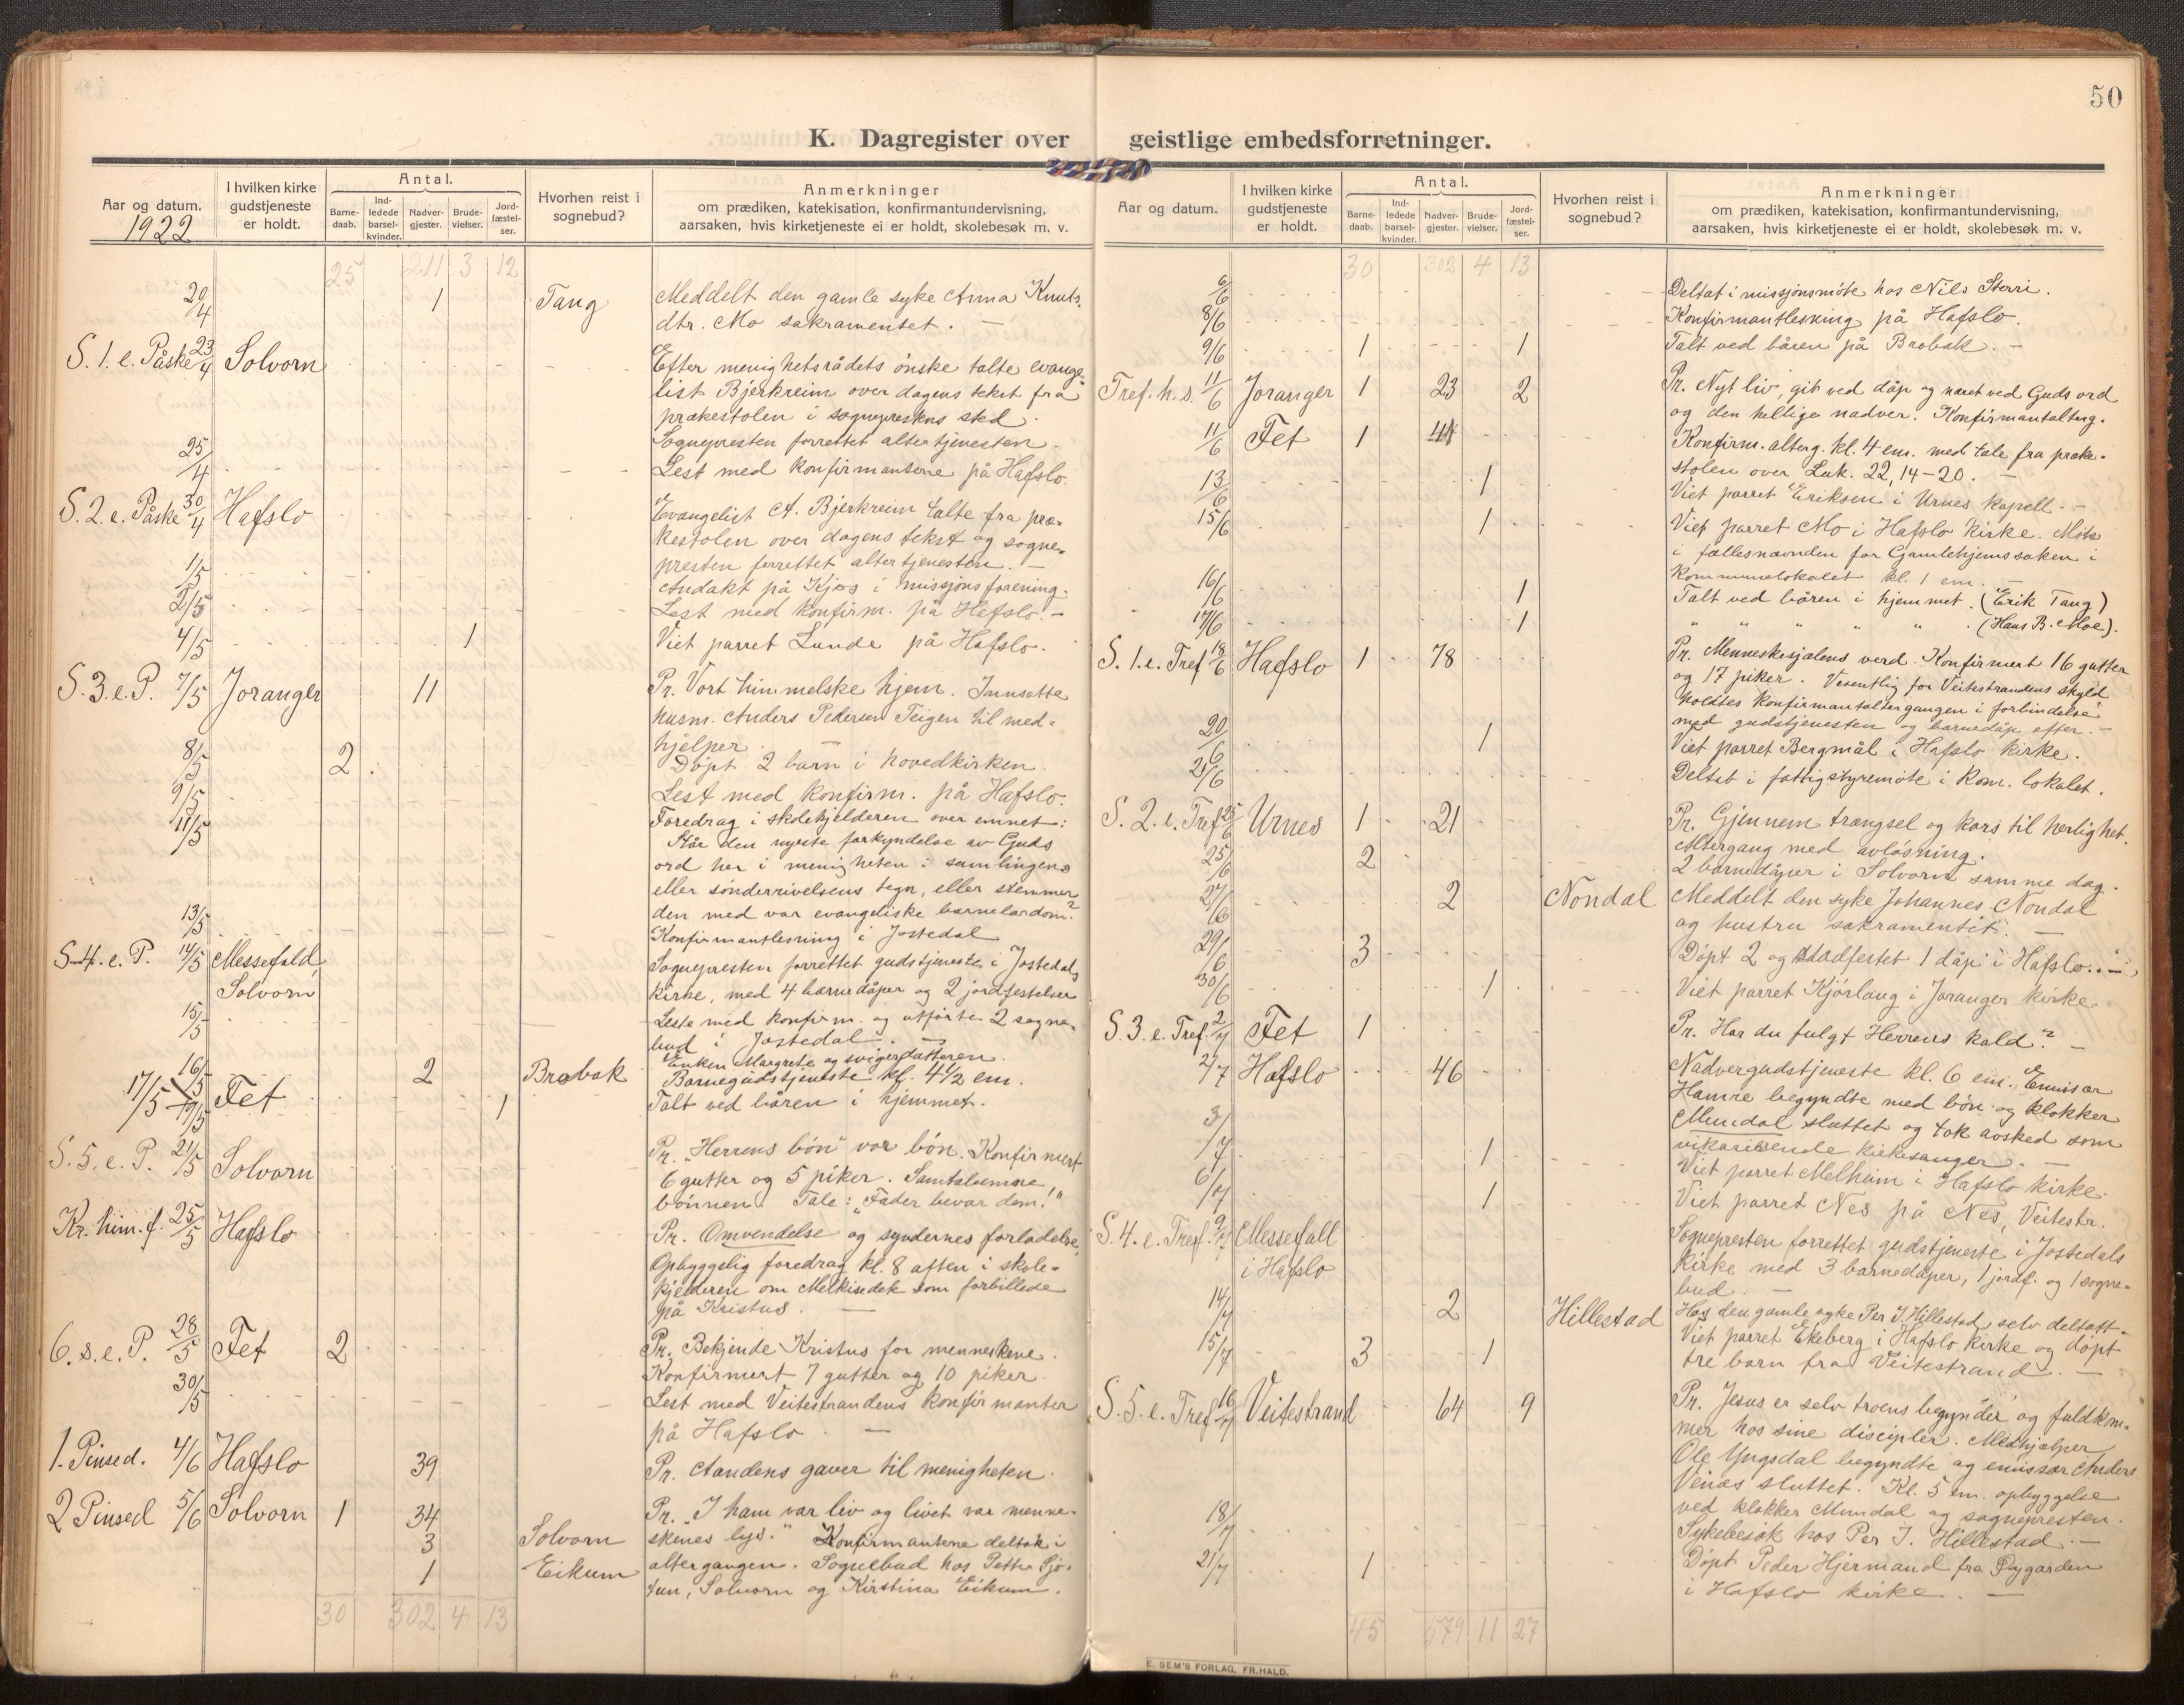 50
K. Dagregister over geistlige embedsforretninger.
Aar og datum. 1922
I hvilken kirke gudstjeneste er holdt.
Antal.
Barne-daab.
Ind-ledede barsel-kvinder.
Nadver-gjester.
Brude-vielser.
Jord-fæstel-ser.
Hvorhen reist i sognebud?
Anmerkninger
om prædiken, katekisation, konfirmantundervisning,
aarsaken, hvis kirketjeneste ei er holdt, skolebesøk m. v.
25 211 3 12
20/4 1 Tang Meddelt den gamle syke Anna Knuts.
dtr. Mo sakramentet. —
S. 1. e. Påske 23/4 Solvorn Efter menighetsrådets ønske talte evange-
list Bjerkreim over dagens tekst fra
prækestolen i sogneprestens sted.
Sognepresten forrettet altertjenesten.
25/4 Lest med konfirmantene på Hafslo.
S. 2. e. Påske 30/4 Hafslo Evangelist A. Bjerkreim talte fra præ-
kestolen over dagens tekst og sogne-
presten forrettet altertjenesten. —
1/5 Andakt på Kjos i missjonsforening.
2/5 Lest med konfirm. på Hafslo. —
4/5 1 Viet parret Lunde på Hafslo.
S. 3. e. P. 7/5 Joranger 11 Pr. Vort himmelske hjem. Innsatte
husm. Anders Pedersen Teigen til med-
hjelper. —
8/5 2 Døpt 2 barn i hovedkirken.
9/5 Lest med konfirm. på Hafslo.
11/5 Foredrag i skolekjelderen over emnet:
Står den nyeste forkyndelse av Guds
ord her i menigheten i samlingens
eller sønderrivelsens tegn, eller stemmer
den med vor evangeliske barnelærdom?
13/5 Konfirmantlesning i Jostedal
S. 4. e. P. 14/5 Messefald, Solvorn Sognepresten forrettet gudstjeneste i Jostedals
kirke, med 4 barnedåper og 2 jordfestelser
15/5 Leste med konfirm. og utførte 2 sogne-
bud i Jostedal. —
16/5 2 Brobak Enken Margrete og svigerdatteren.
17/5 Fet Barnegudstjeneste kl. 4½ em.
19/5 1 Talt ved båren i hjemmet.
S. 5. e. P. 21/5 Solvorn Pr. „Herrens bøn" vor bøn. Konfirmert
6 gutter og 5 piker. Samtaleemne
bønnen. Tale: „Fader bevar dem!"
Kr. him. f. 25/5 Hafslo Pr. Omvendelse og syndernes forladelse,
Opbyggelig foredrag kl. 8 aften i skole-
kjelderen om Melkisedek som forbillede
på Kristus. —
6. s. e. P. 28/5 Fet 2 Pr. Bekjende Kristus for menneskene.
Konfirmert 7 gutter og 10 piker.
30/5 Lest med Veitestrandens konfirmanter
på Hafslo. —
1. Pinsed. 4/6 Hafslo 39 Pr. Aandens gaver til menigheten.
2 Pinsed 5/6 Solvorn 1 34 Pr. „I ham var liv og livet var menne-
3 Solvorn skenes lys." Konfirmantene deltok i
1 Eikum altergangen. Sognebud hos Petter Sjø-
tun, Solvorn og Kirstina Eikum.
30 302 4 13
Aar og datum.
I hvilken kirke gudstjeneste er holdt.
Antal.
Barne-daab.
Ind-ledede barsel-kvinder.
Nadver-gjester.
Brude-vielser.
Jord-fæstel-ser.
Hvorhen reist i sognebud?
Anmerkninger
om prædiken, katekisation, konfirmantundervisning,
aarsaken, hvis kirketjeneste ei er holdt, skolebesøk m. v.
30 302 4 13
6/6 Deltat i missjonsmøte hos Nils Sterri.
8/6 Konfirmantlesning på Hafslo.
9/6 1 1 Talt ved båren på Brobak. —
Tref. h. s. 11/6 Joranger 1 23 2 Pr. Nyt liv, git ved dåp og næret ved Guds ord
og den hellige nadver. Konfirmantalterg.
11/6 Fet 1 41 Konfirm. alterg. kl. 4 em. med tale fra præke-
stolen over Luk. 22, 14-20. —
13/6 1 Viet parret Eriksen i Urnes kapell. —
15/6 1 Viet parret Mo i Hafslo kirke. Møte
i fællesnævnden for Gamlehjemssaken i
kommunelokalet kl. 1 em. —
16/6 1 Talt ved båren i hjemmet. (Erik Tang)
17/6 1 " " " " " (Hans B. Moe).
S. 1. e. Tref 18/6 Hafslo 1 78 Pr. Menneskesjelens verd. Konfirmert 16 gutter
og 17 piker. Vesentlig for Veitestrandens skyld
holdtes konfirmantaltergangen i forbindelse
med gudstjenesten og barnedåp efter. —
20/6 1 Viet parret Bergmål i Hafslo kirke.
21/6 Deltat i fattigstyremøte i kom. lokalet.
S. 2. e. Tref 25/6 Urnes 1 21 Pr. Gjennem trængsel og kors til herlighet.
Altergang med avløsning.
25/6 2 2 barnedåper i Solvorn samme dag.
27/6 2 Nondal Meddelt den syke Johannes Nondal
og hustru sakramentet. —
29/6 3 Døpt 2 og stadfestet 1 dåp i Hafslo. —
30/6 1 Viet parret Kjørlaug i Joranger kirke.
S. 3. e. Tref. 2/7 Fet 1 Pr. Har du fulgt Herrens kald? —
2/7 Hafslo 46 Nadvergudstjeneste kl. 6 em. Emisær
Hamre begyndte med bøn og klokker
Mundal sluttet og tok avsked som
vikarierende kirkesanger. —
3/7 1 Viet parret Melheim i Hafslo kirke.
6/7 1 Viet parret Nes på Nes, Veitestr.
S. 4. e. Tref. 9/7 Messefall i Hafslo Sognepresten forrettet gudstjeneste i Jostedals
kirke med 3 barnedåper, 1 jordf. og 1 sogne-
bud. —
14/7 2 Hillestad Hos den gamle syke Per J. Hillestad, selv deltatt.
15/7 3 1 Viet parret Ekeberg i Hafslo kirke og døpt
tre barn fra Veitestrand. —
S. 5. e. Tref 16/7 Veitestrand 64 9 Pr. Jesus er selv troens begynder og fuldkom-
mer hos sine discipler. Medhjælper
Ole Yngsdal begyndte og emissær Anders
Venæs sluttet. Kl. 5 em. opbyggelse
ved klokker Mundal og sognepresten.
18/7 Sykebesøk hos Per J. Hillestad. —
21/7 1 Døpt Peder Hjermand fra Øygarden
i Hafslo kirke. —
45 579 11 27
E. SEM'S FORLAG, FR.HALD.